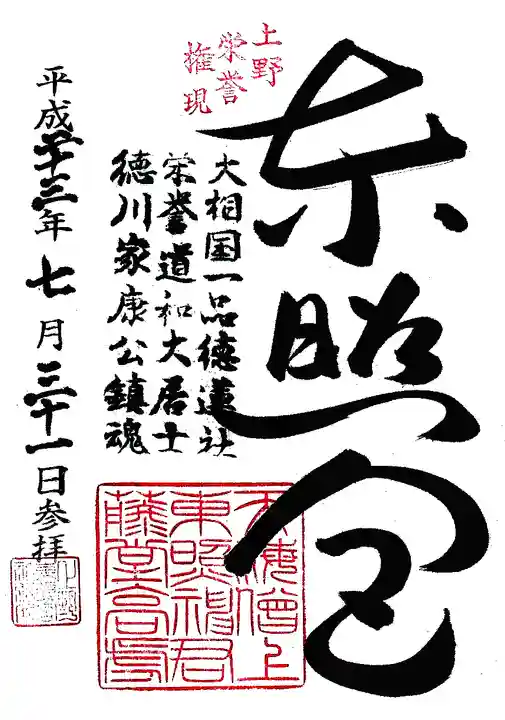 東照宮
上野
栄誉
権現
大相国一品徳蓮社
栄誉道和大居士
徳川家康公鎮魂
平成二十三年七月三十一日参拝
天海僧上
東照神君
藤堂高虎